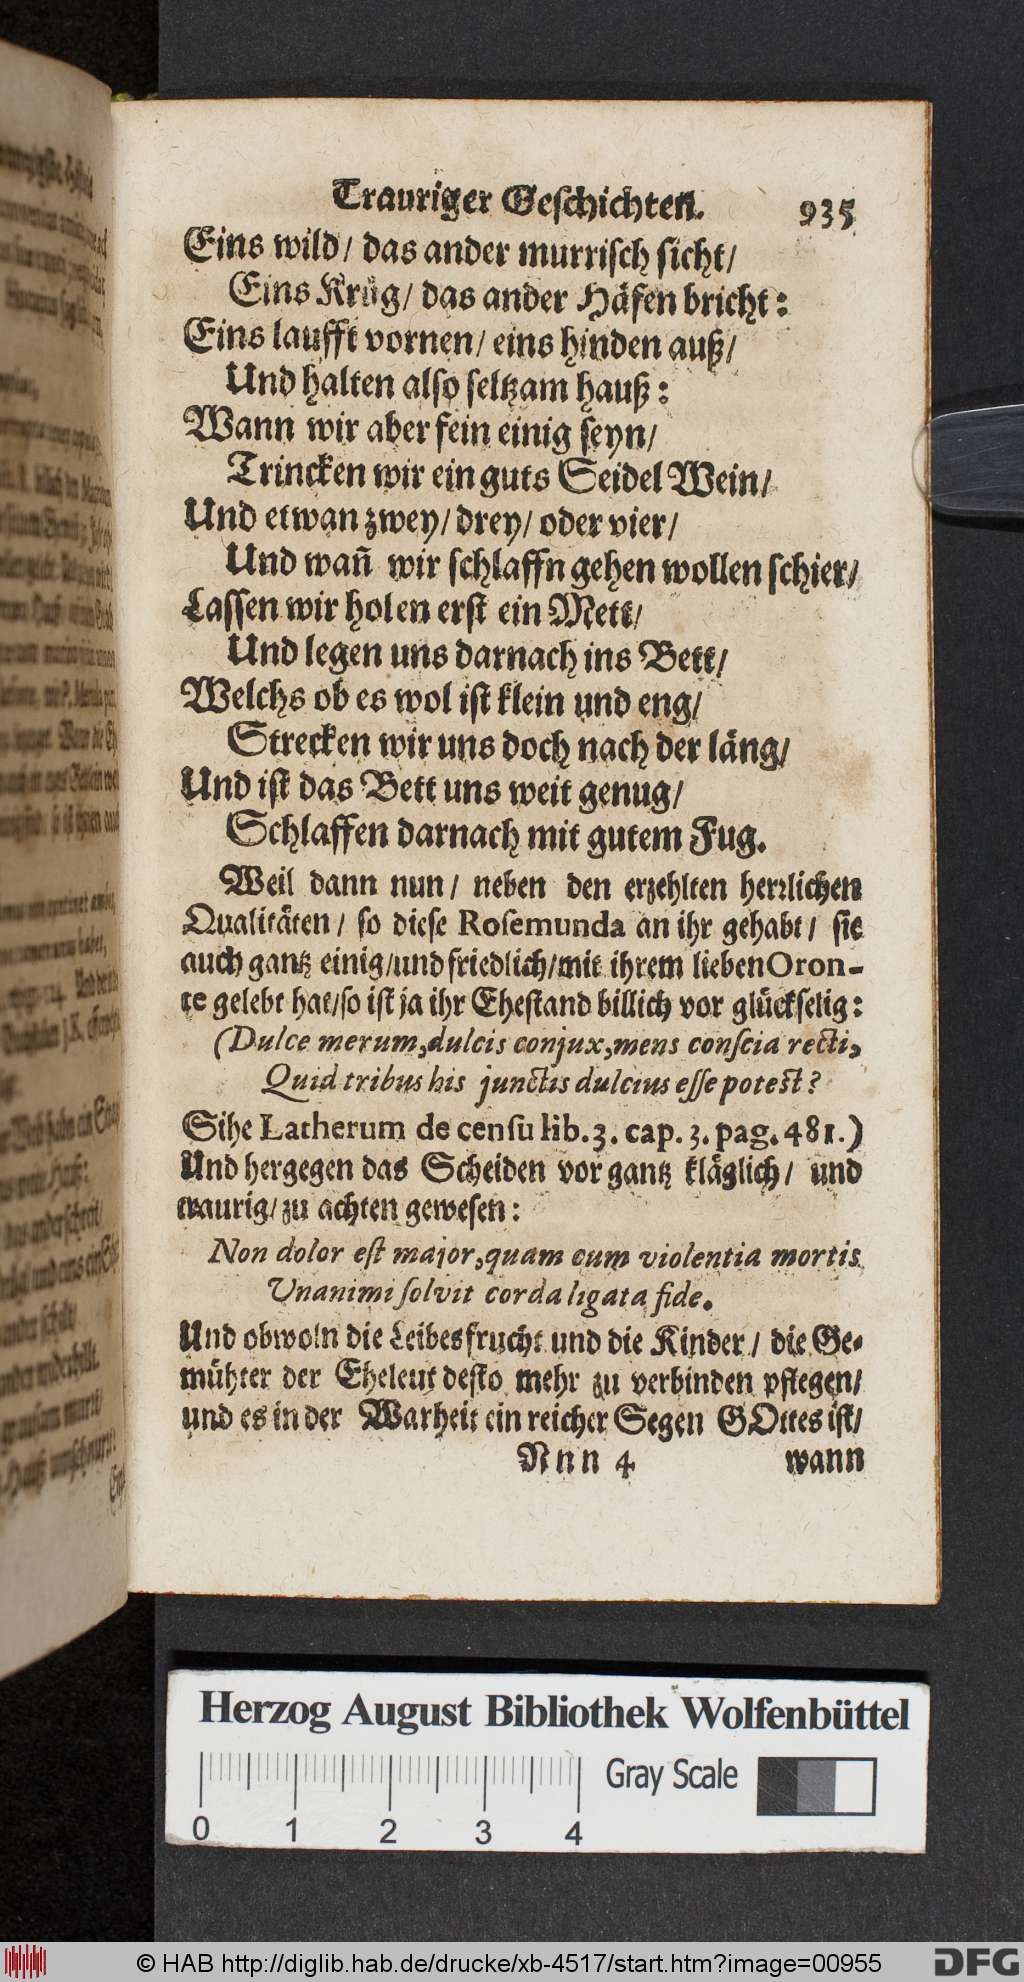 Trauriger Geſchichten. 935
Eins wild/ das ander murriſch ſicht/
Eins Krüg/ das ander Häfen bricht:
Eins laufft vornen/ eins hinden auß/
Und halten alſo ſeltzam hauß:
Wann wir aber fein einig ſeyn/
Trincken wir ein guts Seidel Wein/
Und etwan zwey/ drey/ oder vier/
Und wañ wir ſchlaffn gehen wollen ſchier/
Laſſen wir holen erſt ein Mett/
Und legen uns darnach ins Bett/
Welchs ob es wol iſt klein und eng/
Strecken wir uns doch nach der läng/
Und iſt das Bett uns weit genug/
Schlaffen darnach mit gutem Fug.
Weil dann nun/ neben den erzehlten herrlichen
Qualitäten/ ſo dieſe Roſemunda an ihr gehabt/ ſie
auch gantz einig/und friedlich/mit ihrem lieben Oron-
te gelebt hat/ſo iſt ja ihr Eheſtand billich vor glückſelig:
(Dulce merum,dulcis conjux,mens conſcia recti,
Quid tribus his junctis dulcius eſſe poteſt?
Sihe Latherum de cenſu lib. 3. cap. 3. pag. 481.)
Und hergegen das Scheiden vor gantz kläglich/ und
traurig/ zu achten geweſen:
Non dolor eſt major,quam cum violentia mortis
Unanimi ſolvit corda ligata fide.
Und obwoln die Leibesfrucht und die Kinder/ die Ge-
mühter der Eheleut deſto mehr zu verbinden pflegen/
und es in der Warheit ein reicher Segen GOttes iſt/
Nnn 4 wann
Herzog August Bibliothek Wolfenbüttel
Gray Scale
0 1 2 3 4
© HAB http://diglib.hab.de/drucke/xb-4517/start.htm?image=00955
DFG